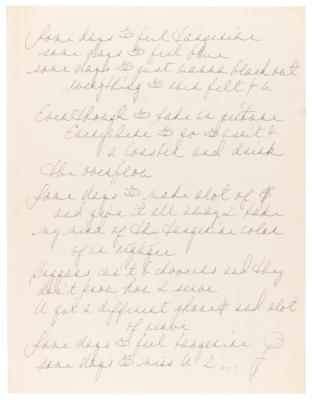 Some days 👁 feel tangerine
some days 👁 feel blue
some days 👁 just wanna black out
everything 👁 ever felt 4 U
Even though 👁 take ur picture
Everywhere 👁 go 👁 use it 4
a coaster and drink
the overflow
Some days 👁 make alot of $
and give it all away 2 take
my mind of the tangerine color
of ur negligee
Beggars can't b choosers and they
don't know how 2 serve
U got a different phone# and alot
of nerve
Some days 👁 feel tangerine
some days 👁 miss U 2...